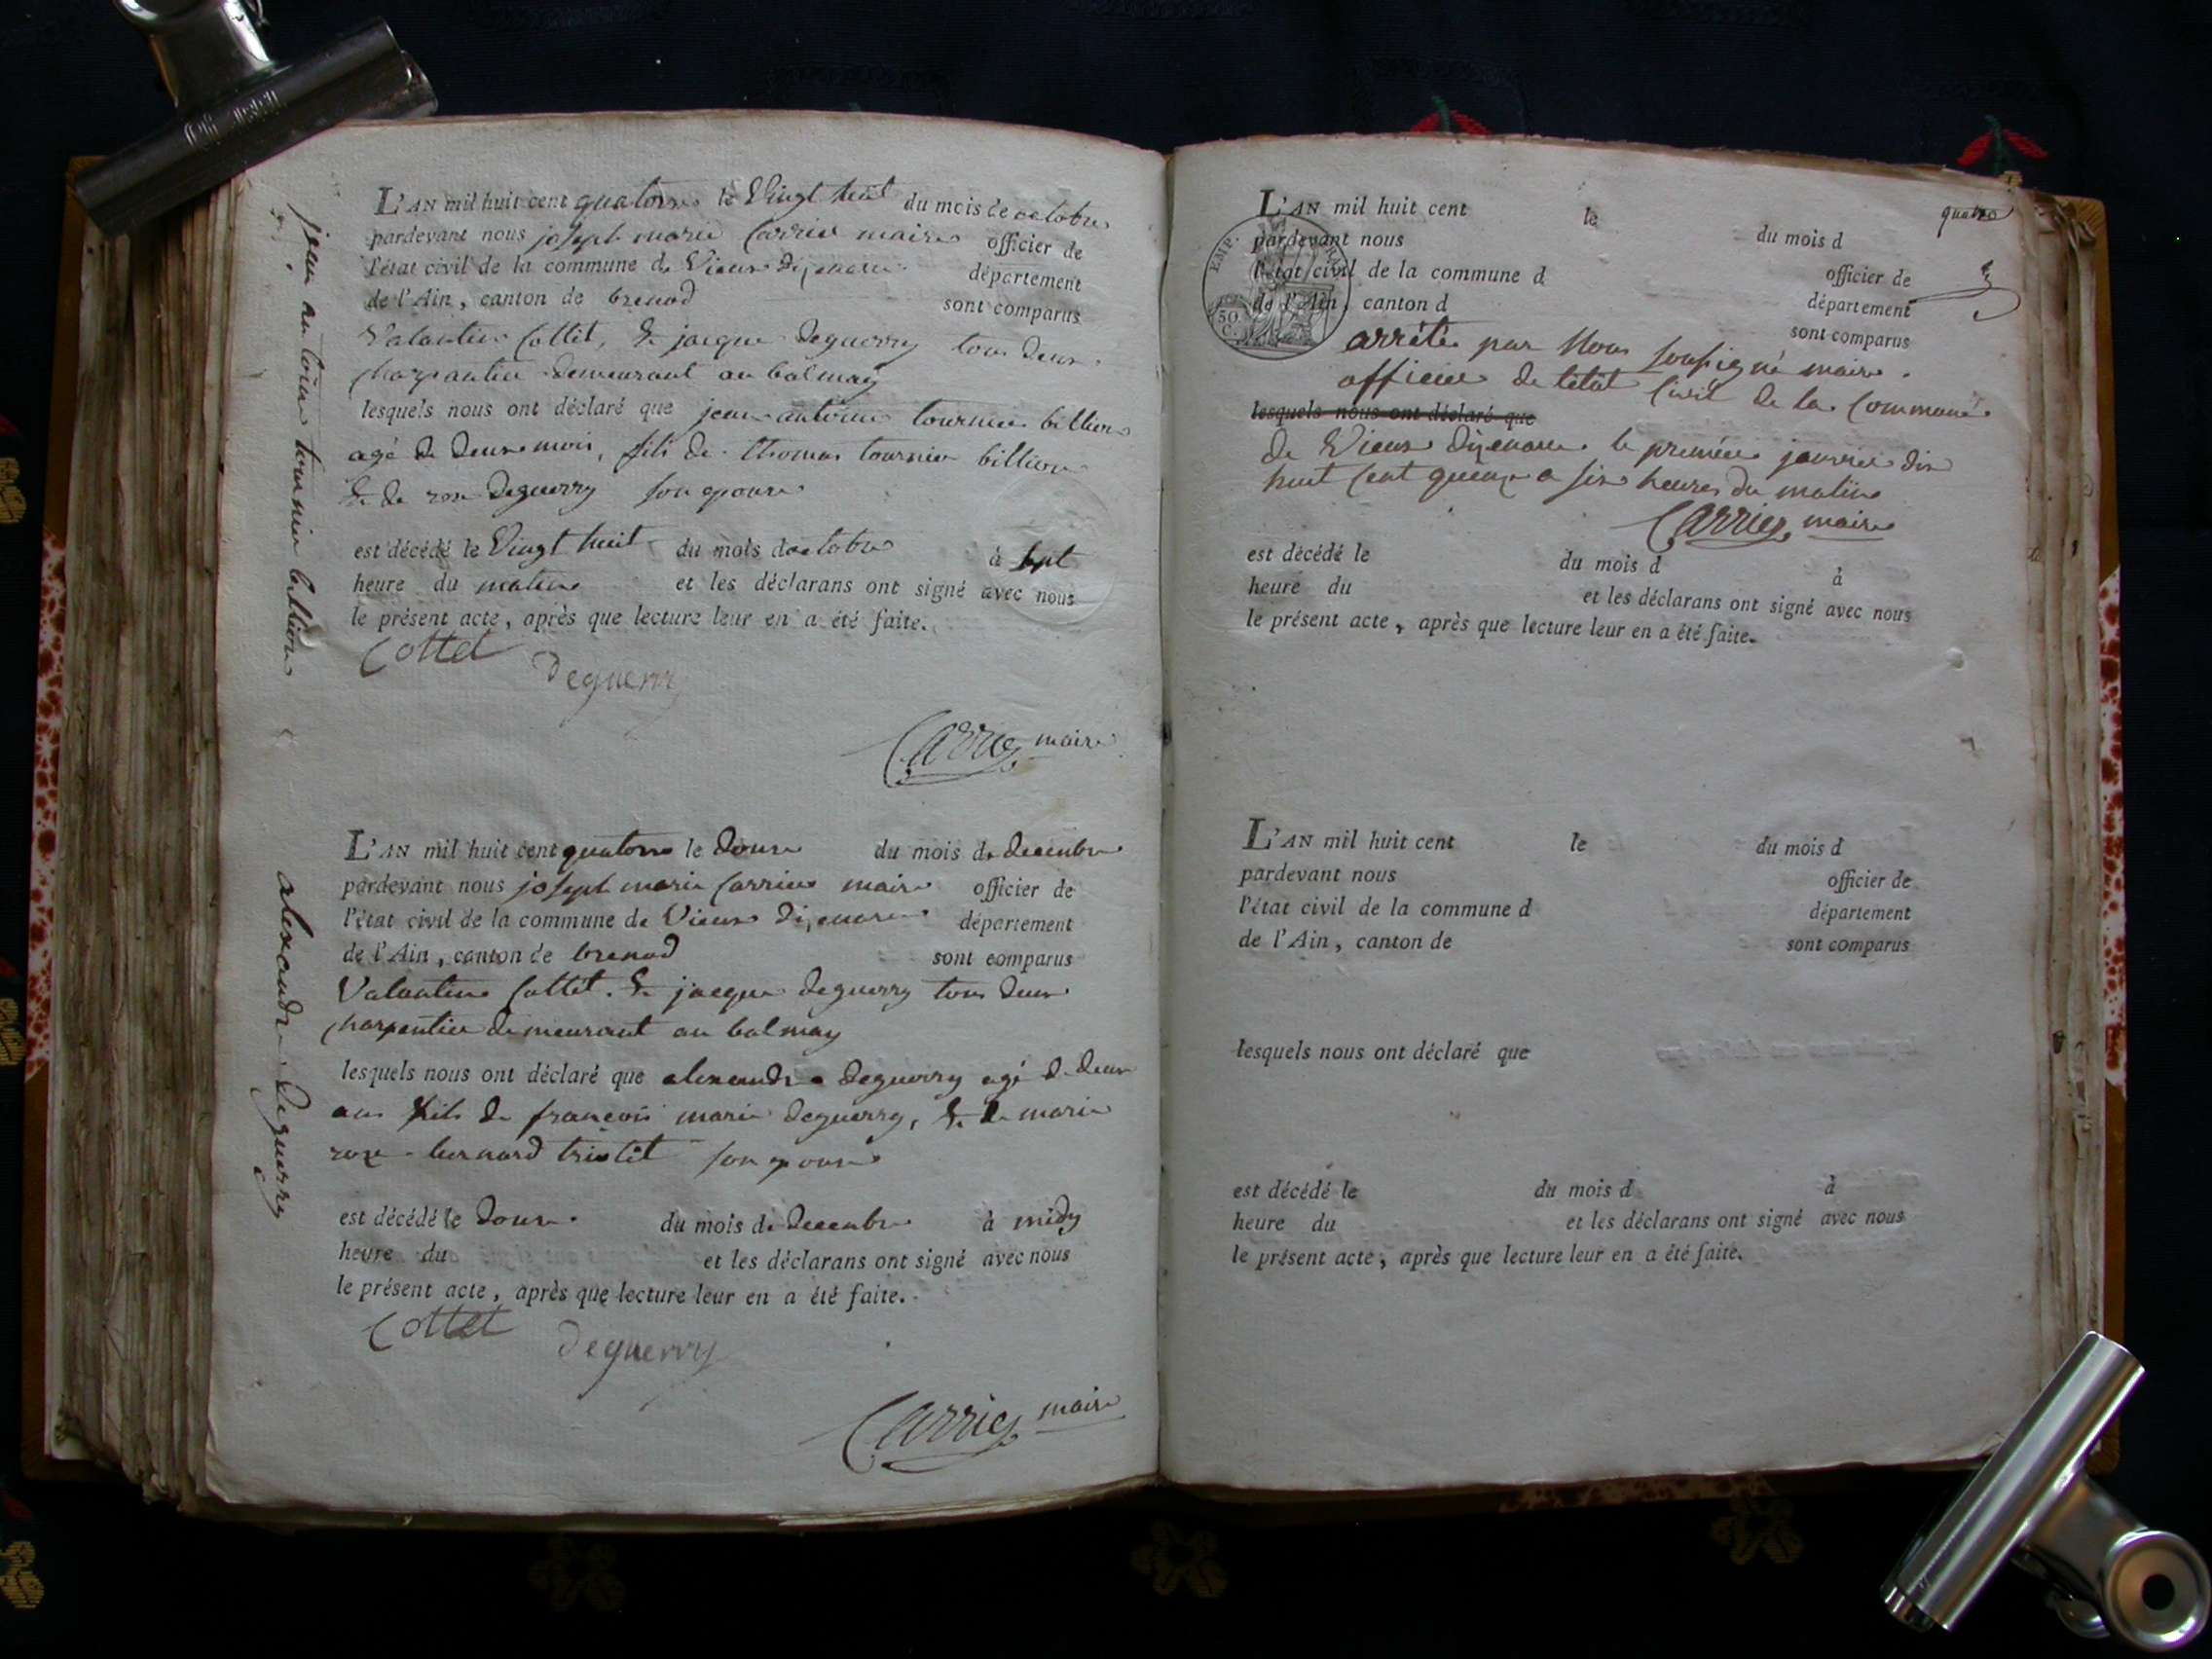 jean antoine tournier billion
L'AN mil huit cent quatorze le Vingt huit du mois de octobre
pardevant nous joseph marie Carrier maire officier de
l'état civil de la commune de Vieux dizenave département
de l'Ain, canton de brenod sont comparus
Valantin Collet, & jacque deguerry tous deux
charpantier demeurant au balmay
lesquels nous ont déclaré que jean antoine tournier billion
agé de deux mois, fils de thomas tournier billion
& de roze deguerry son epouse
est décédé le Vingt huit du mois doctobre à sept
heure du matin et les déclarans ont signé avec nous
le présent acte, après que lecture leur en a été faite.
Cottet
Deguerry
Carrier maire
alexandre deguerry
L'AN mil huit cent quatorze le douze du mois de decembre
pardevant nous joseph marie Carrier maire officier de
l'état civil de la commune de Vieux dizenave département
de l'Ain, canton de brenod sont comparus
Valantin Cottet. & jacque deguerry tous deux
charpentier demeurant au balmay
lesquels nous ont déclaré que alexandre deguerry agé de deux
ans fils de françois marie deguerry, & de marie
roze bernard son epouse
est décédé le douze du mois de decembre à midy
heure du et les déclarans ont signé avec nous
le présent acte, après que lecture leur en a été faite.
Cottet
Deguerry
Carrier maire
quatre
L'AN mil huit cent le du mois d
pardevant nous officier de
l'état civil de la commune d département
de l'Ain, canton d sont comparus
EMP.
50
C.
arrêté par Nous soussigné maire
officier de létat Civil de la Commune
lesquels nous ont déclaré que
de Vieux dizenave le premier janvier dix
huit Cent quinze a six heures du matin
Carrier maire
est décédé le du mois d à
heure du et les déclarans ont signé avec nous
le présent acte, après que lecture leur en a été faite.
L'AN mil huit cent le du mois d
pardevant nous officier de
l'état civil de la commune d département
de l'Ain, canton de sont comparus
lesquels nous ont déclaré que
est décédé le du mois d à
heure du et les déclarans ont signé avec nous
le présent acte, après que lecture leur en a été faite.